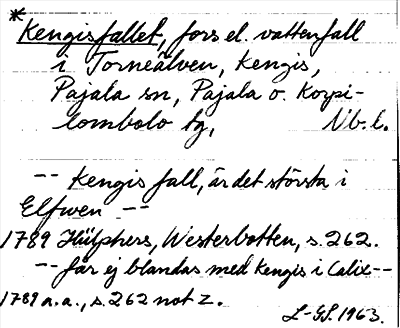 *
Kengisfallet, fors el. vattenfall
i Torneälven, Kengis,
Pajala sn, Pajala o. Korpi-
lombolo tg, Nb. l.
-- Kengis fall, är det största i
Elfwen --
1789 Hülphers, Westerbotten, s. 262.
-- får ej blandas med Kengis i Calix--
1789 a.a., s. 262 not z.
L-GS. 1963.